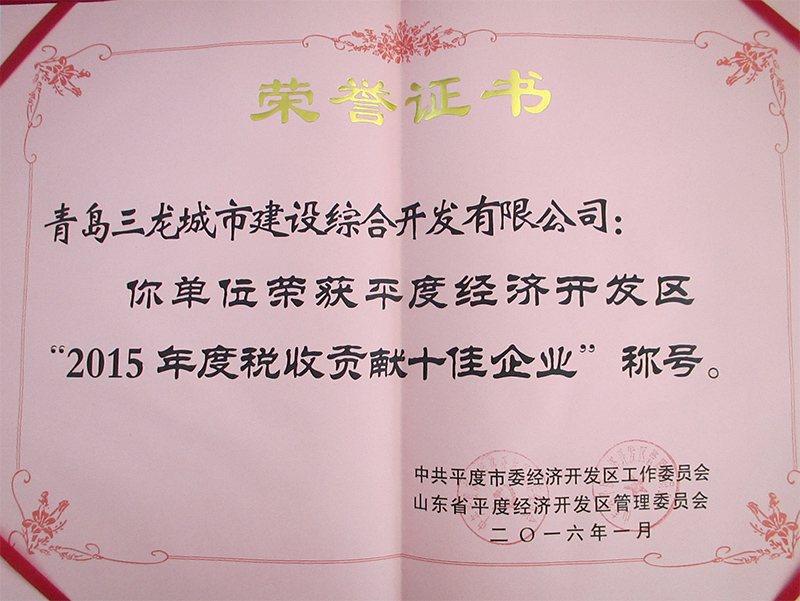 荣誉证书
青岛三龙城市建设综合开发有限公司：
你单位荣获平度经济开发区
“2015年度税收贡献十佳企业”称号。
中共平度市委经济开发区工作委员会
山东省平度经济开发区管理委员会
二〇一六年一月